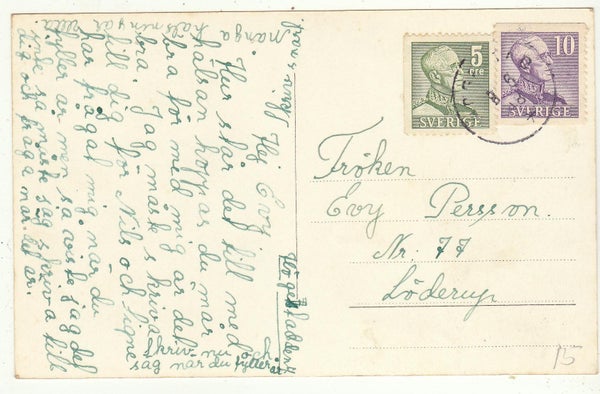 Hej Evy
Hur står det till med
hälsan hoppas du mår
bra för med mig är det
bra. Jag måste skriva
till dig för Nils och Signe
har frågat mig när du
fyller år men så visste jag det
inte så måste jag skriva till
dit och fråga när det är.
Skriv nu och
säg när du fyller år
Många hälsningar
5
öre
SVERIGE
10
SVERIGE
Fröken
Evy Persson.
Nr. 77
Löderup